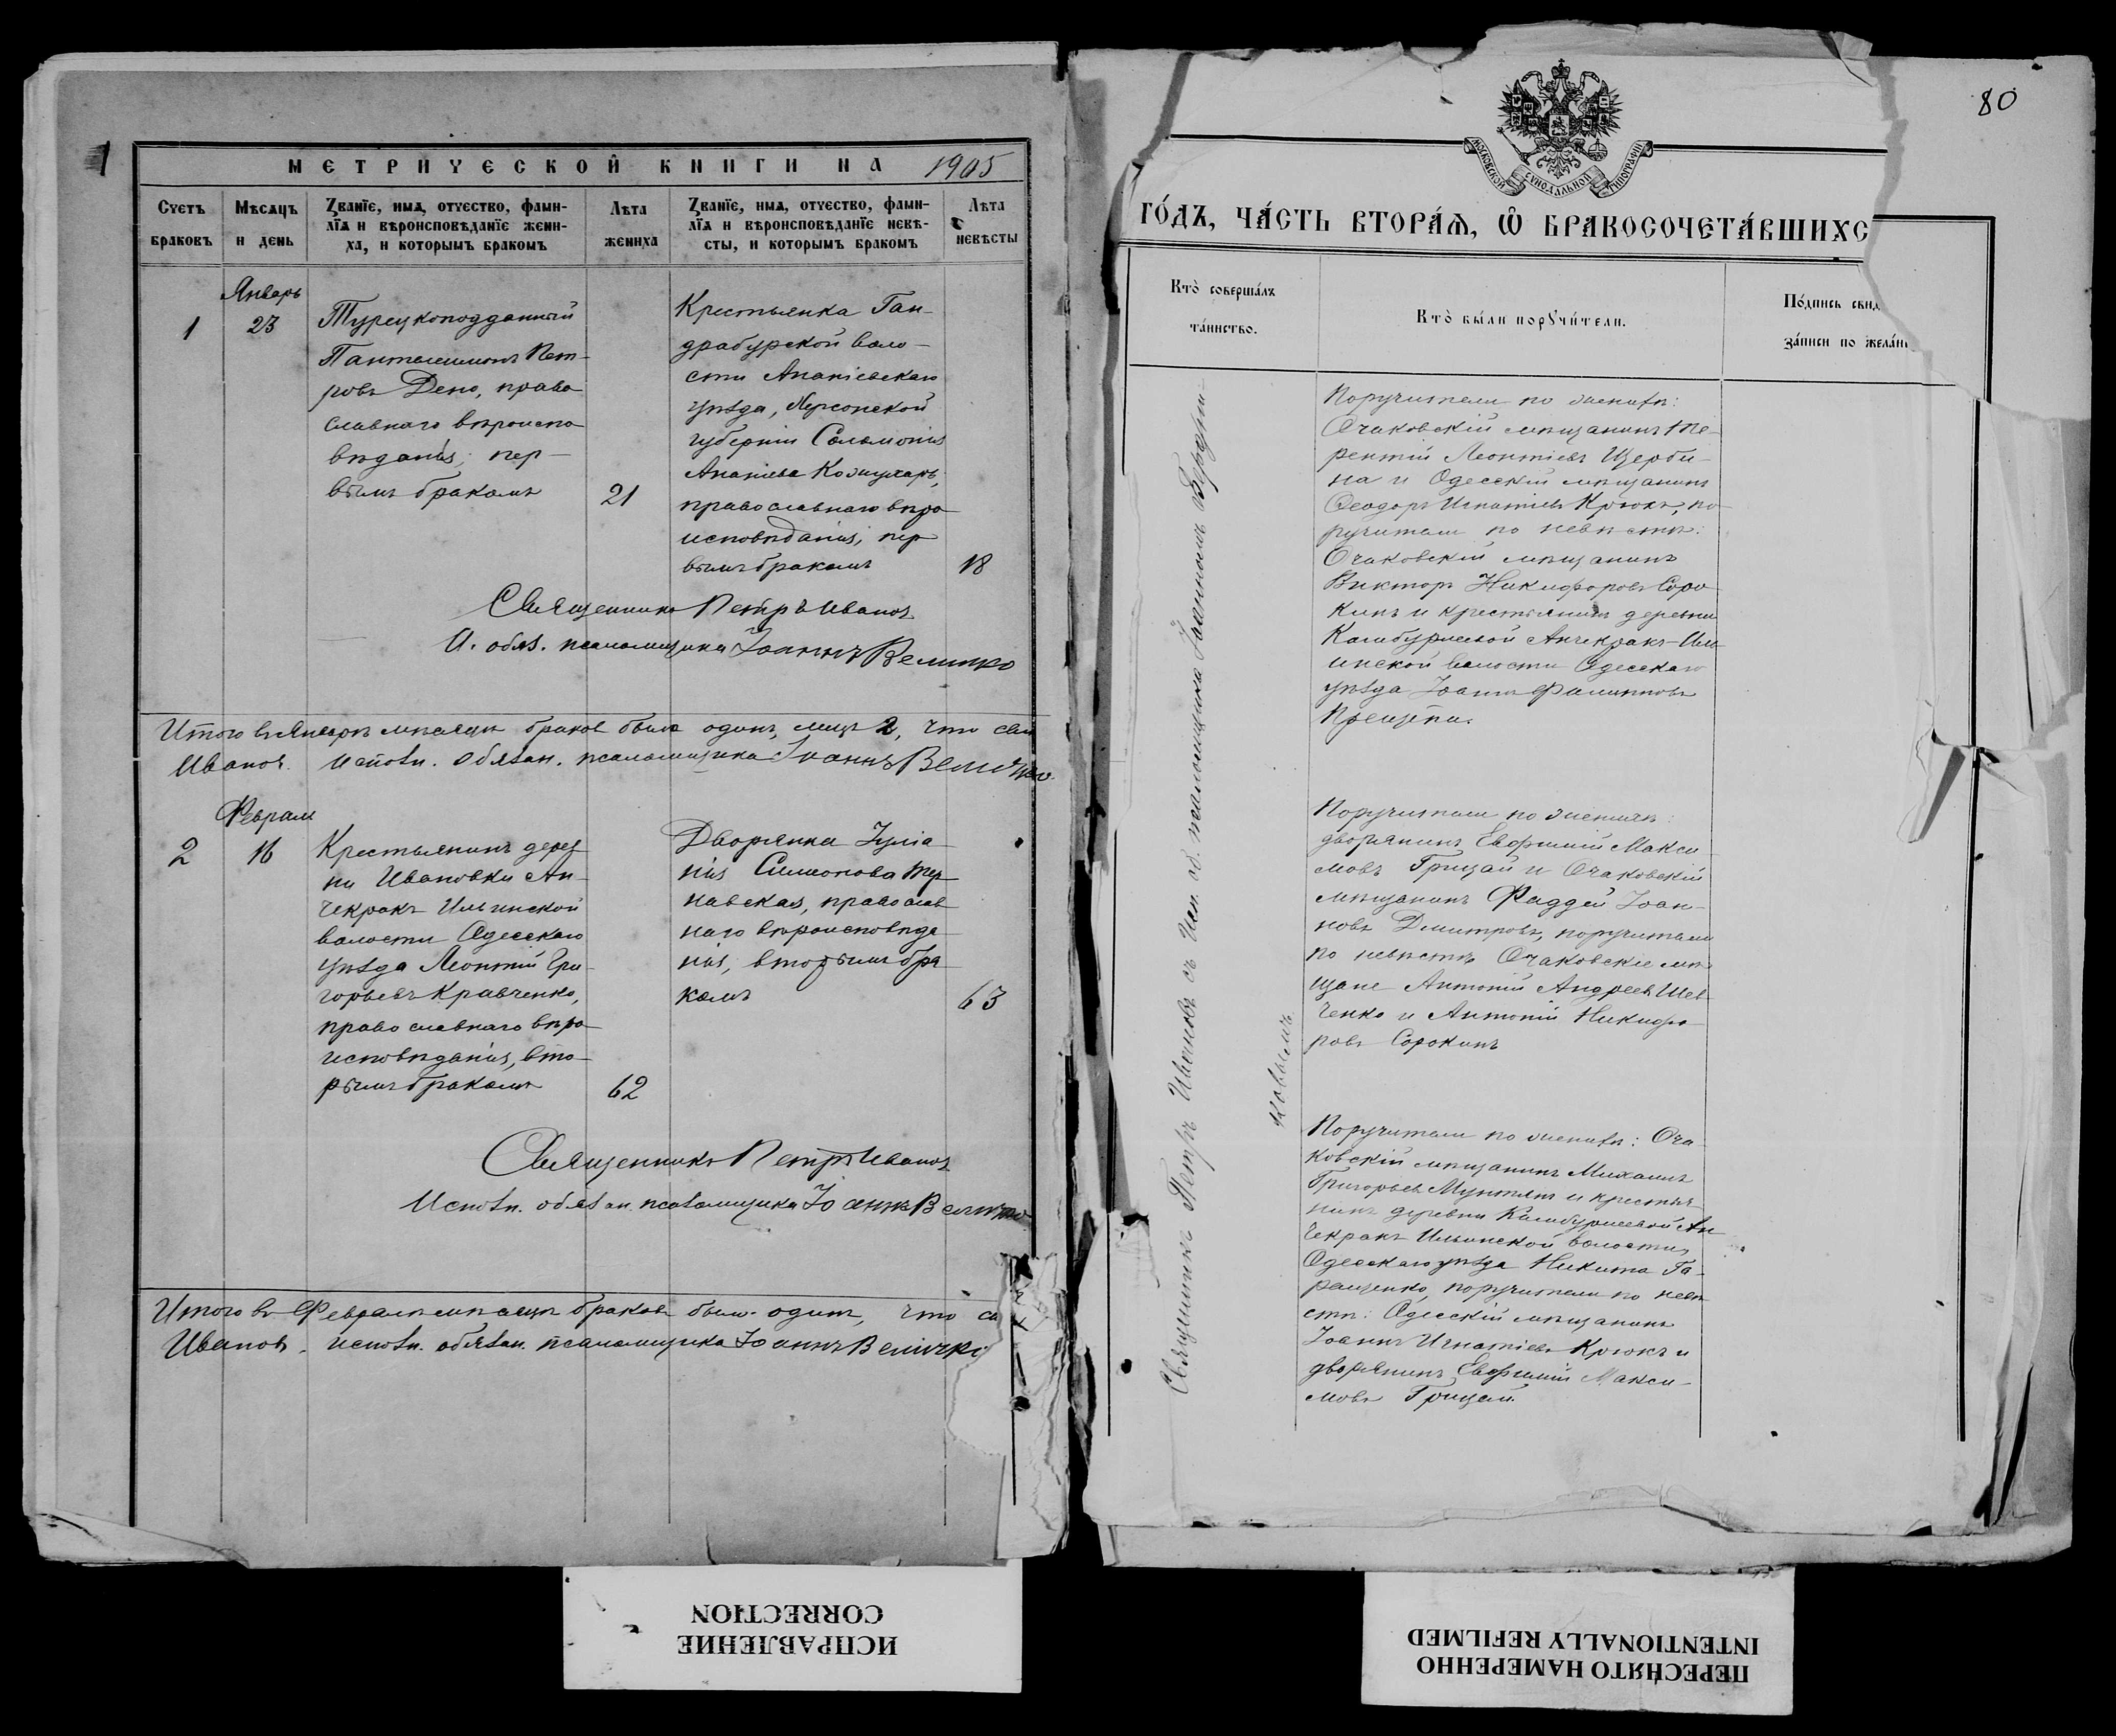 МЕТРИЧЕСКОЙ КНИГИ НА 1905
Счетъ браковъ
Мѣсяцъ и день
Званїе, имя, отчество, фами-
лїя и вѣроисповѣданїе жени-
ха, и которымъ бракомъ
Лѣта жениха
Званїе, имя, отчество, фами-
лїя и вѣроисповѣданїе невѣ-
сты, и которымъ бракомъ
Лѣта невѣсты
1
Январь
23
Турецкоподданный
Пантелеимонъ Пет-
ровъ Дено, право
славнаго вѣроиспо
вѣданія; пер-
вымъ бракомъ
21
Крестьянка Ган-
драбурской воло-
сти Ананіевскаго
уѣзда, Херсонской
губерніи Соломонія
Ананіева Кожухарь,
православнаго вѣро
исповѣданія, пер
вымъ бракомъ
18
Священникъ Петръ Ивановъ
И. обяз. псаломщика Іоаннъ Величко
Итого въ Январѣ мѣсяцѣ браковъ было одинъ, лицъ 2, что
Ивановъ. Исполн. обязан. псаломщика Іоаннъ Величко
2
Февраль
16
Крестьянинъ дерев
ни Ивановки Ан-
чекракъ Ильинской
волости Одесскаго
уѣзда Леонтій Гри-
горьевъ Кравченко,
православнаго вѣро
исповѣданія, вто-
рымъ бракомъ
62
Дворянка Іуліа-
нія Симеонова Тер
навская, православ
наго вѣроисповѣда
нія, вторымъ бра
комъ
63
Священникъ Петръ Ивановъ
Исполн. обязан. псаломщика Іоаннъ Величко
Итого въ Февралѣ мѣсяцѣ браковъ было одинъ, что
Ивановъ. исполн. обязан. псаломщика Іоаннъ Величко
80
МОСКОВСКОЙ СѴНОДАЛЬНОЙ ТИПОГРАФІИ
ГО́ДЪ, ЧА́СТЬ ВТОРА́Я, Ѡ҆ БРАКОСОЧЕТА́ВШИХС
Кто̀ соверша́лъ
та́инство.
Кто̀ бы́ли порꙋчи́тели.
По́дпись свид
за́писи по жела́н
Священникъ Петръ Ивановъ съ Исп. об. псаломщика Іоанномъ
Поручители по женихѣ:
Очаковскій мѣщанинъ Те-
рентій Леонтіевъ Щерби-
на и Одесскій мѣщанинъ
Ѳеодоръ Игнатіевъ Крюкъ, по
ручители по невѣстѣ:
Очаковскій мѣщанинъ
Викторъ Никифоровъ Соро
кинъ и крестьянинъ деревни
Анчекракъ-Иль
инской волости Одесскаго
уѣзда Іоаннъ Филипповъ
Поручители по женихѣ:
дворянинъ Евфимій Макси
мовъ Грицай и Очаковскій
мѣщанинъ Фаддей Іоан-
новъ Дмитровъ, поручители
по невѣстѣ Очаковскіе мѣ-
щане Антоній Андреевъ Шев
ченко и Антоній Никифо
ровъ Сорокинъ
Поручители по женихѣ: Оча
ковскій мѣщанинъ Михаилъ
Григорьевъ Мунтянъ и крестья
нинъ деревни Ан
чекракъ Ильинской волости
Одесскаго уѣзда Никита Га-
ращенко, поручители по невѣ
стѣ: Одесскій мѣщанинъ
Іоаннъ Игнатіевъ Крюкъ и
дворянинъ Евфимій Макси-
мовъ Грицай.
ИСПРАВЛЕНИЕ
CORRECTION
ПЕРЕСНЯТО НАМЕРЕННО
INTENTIONALLY REFILMED